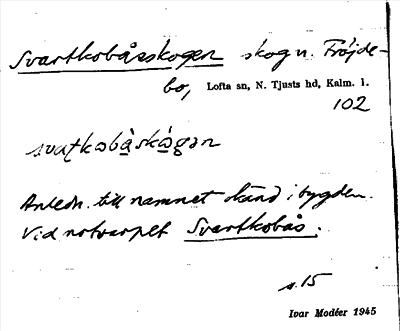 Svartkobåsskogen skogn. Fröjde-
bo, Lofta sn, N. Tjusts hd, Kalm. l.
102
svaṭkobåskógən
Anledn. till namnet känd i bygden.
Vid notvarpet Svartkobås.
s. 15
Ivar Modéer 1945